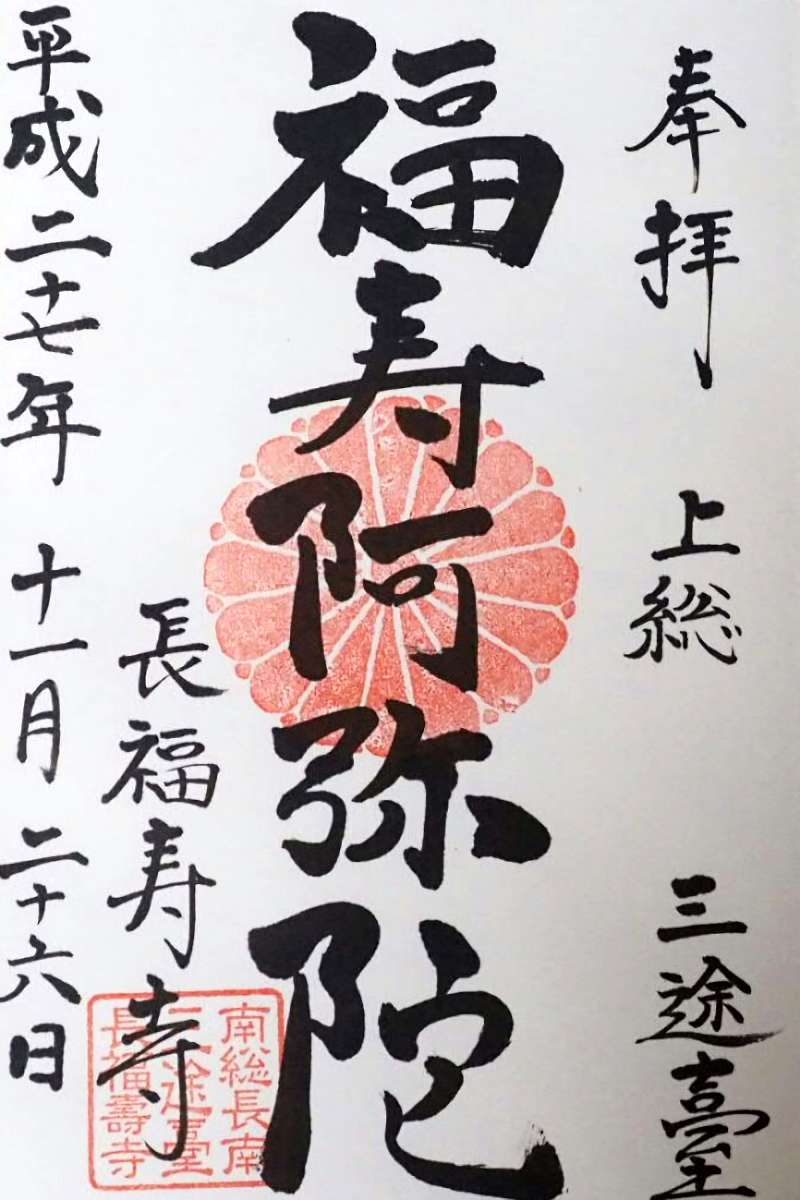 奉拝 上総 三途臺
福寿阿弥陀
長福寿寺
平成二十七年 十一月 二十六日
南総長南
三途臺
長福壽寺